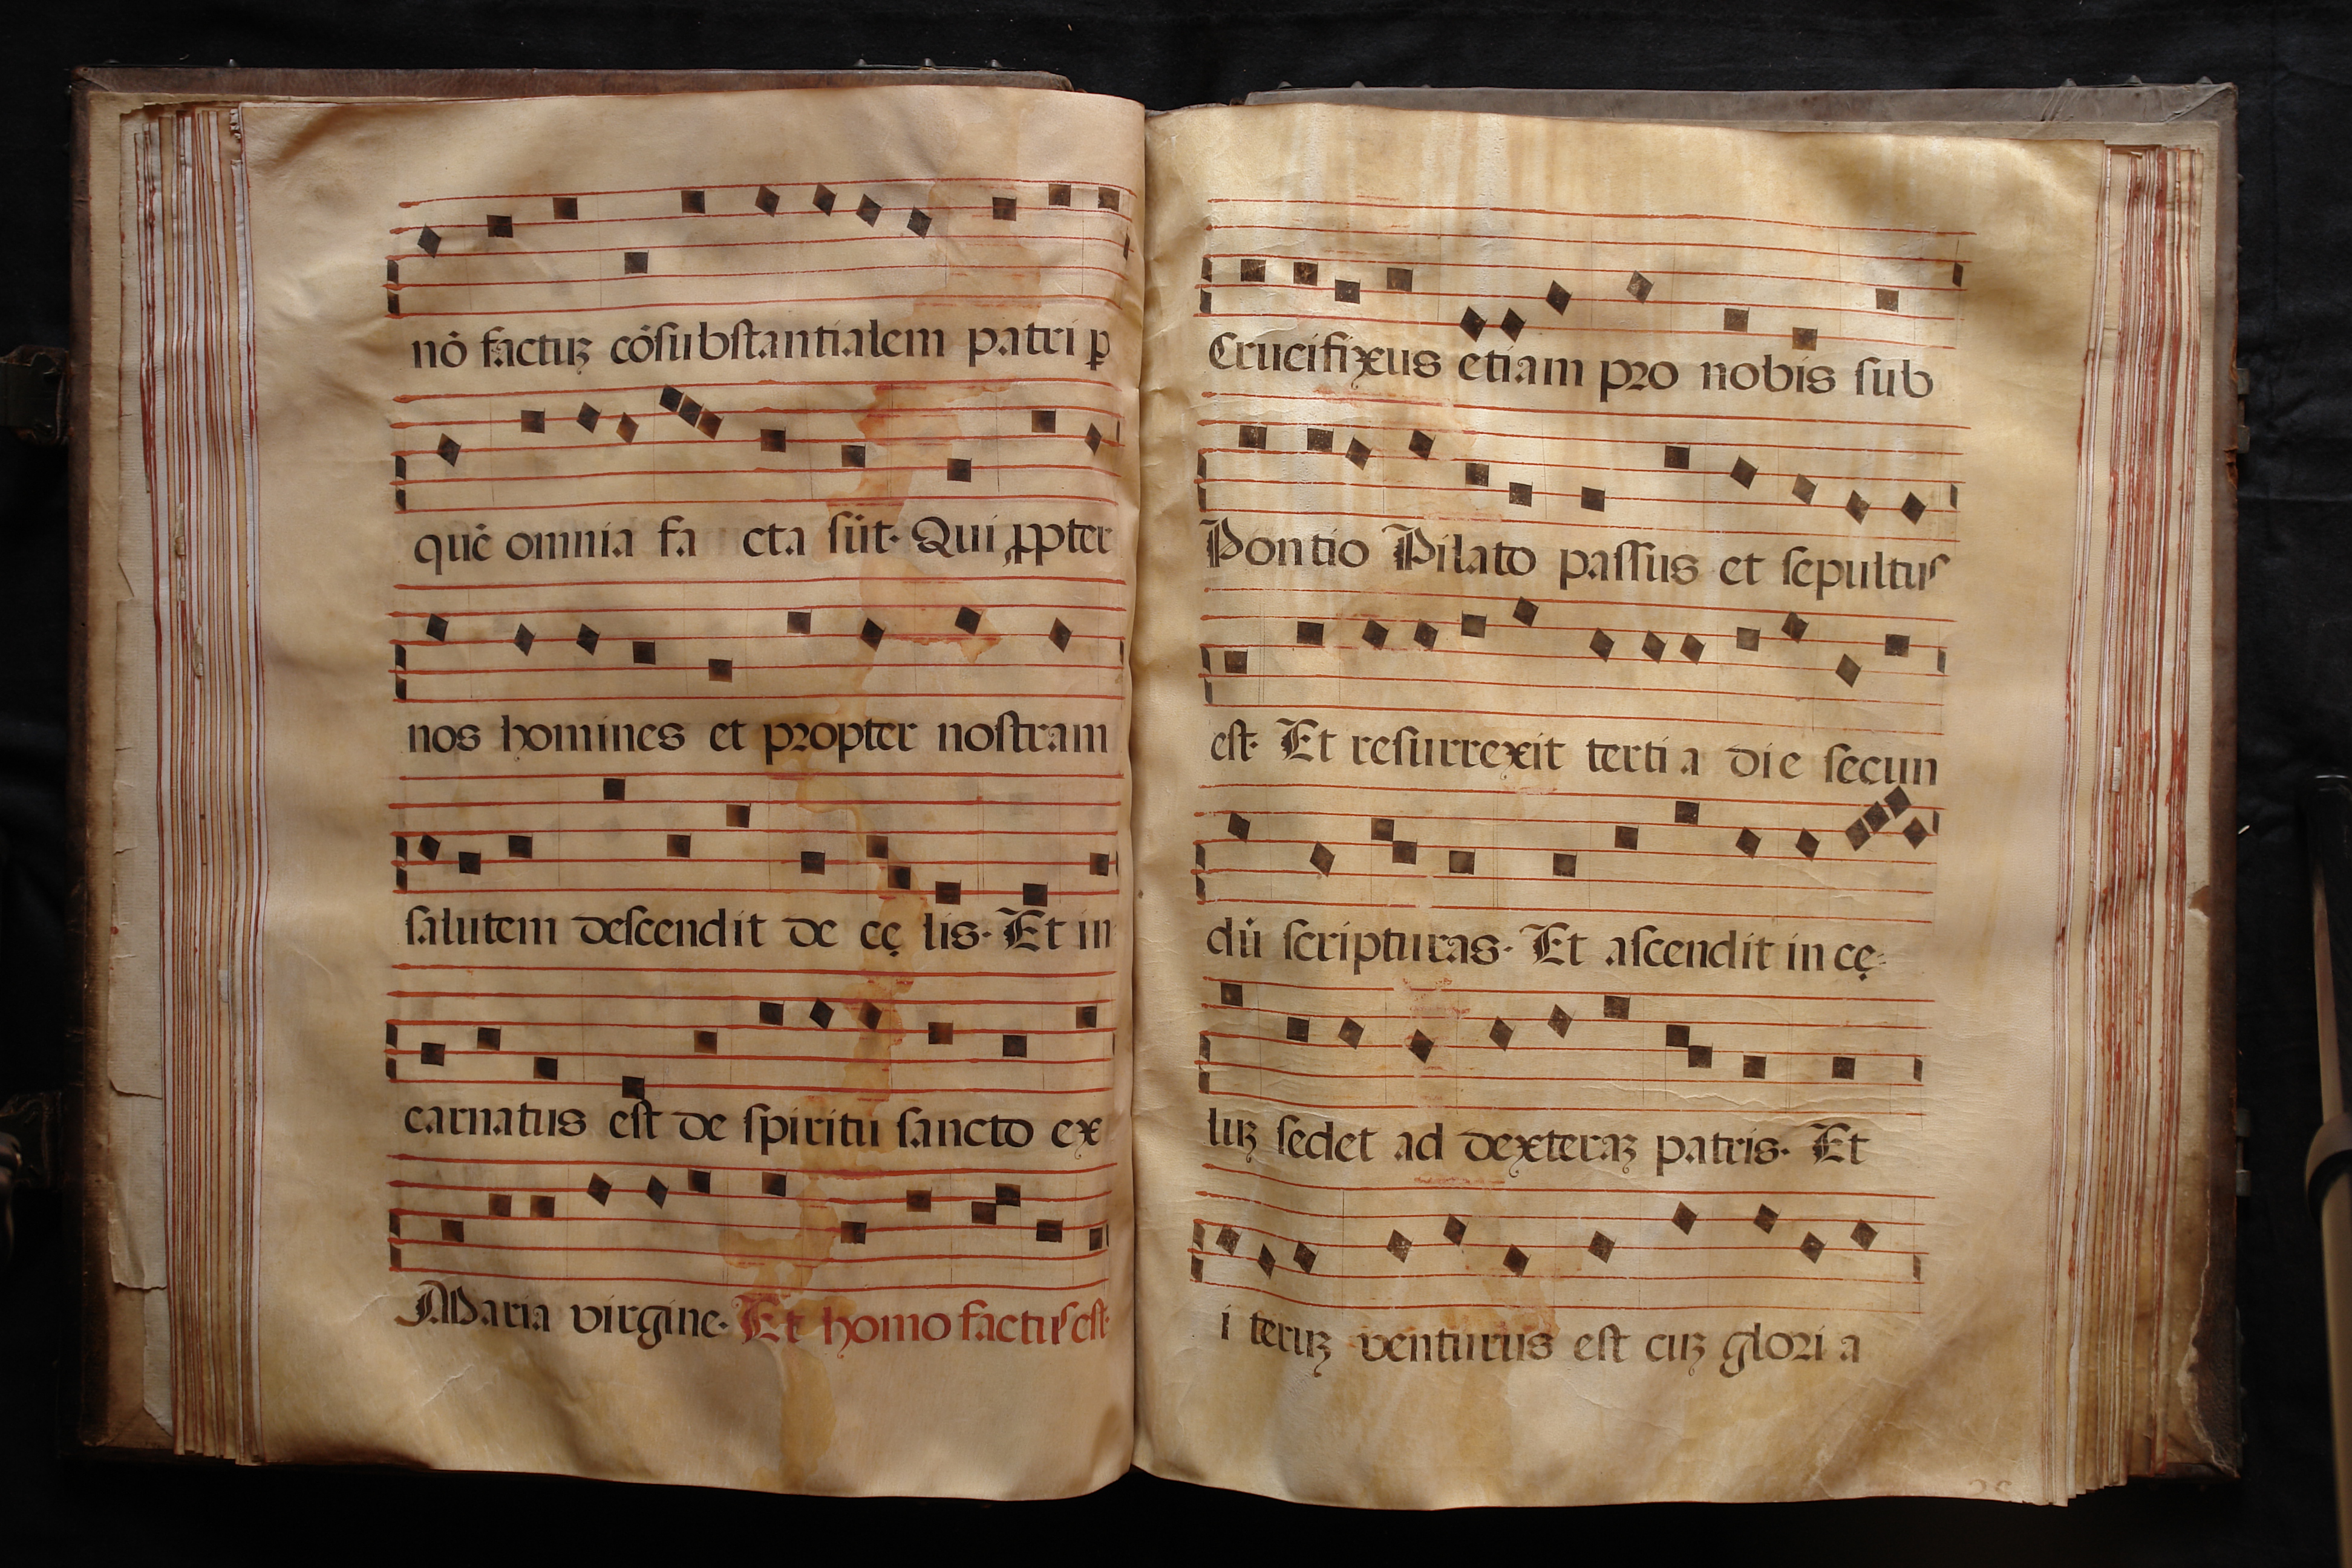 nō factuꝫ cōsubſtantialem patri ꝑ
quē omnia fa cta ſūt. Qui ꝓpter
nos homines et propter noſtram
ſalutem deſcendit de cę lis. Et in
carnatus eſt de ſpiritu ſancto ex
Maria virgine. Et homo factuſ eſt.
Crucifixus etiam pro nobis ſub
Pontio Pilato paſſus et ſepultuſ
eſt. Et reſurrexit terti a die ſecun
dū ſcripturas. Et aſcendit in cę-
luꝫ ſedet ad dexteraꝫ patris. Et
i teruꝫ venturus eſt cuꝫ glori a